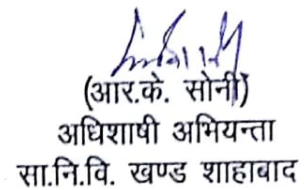 (आर.के. सोनी)
अधिशाषी अभियन्ता
सा.नि.वि. खण्ड शाहाबाद